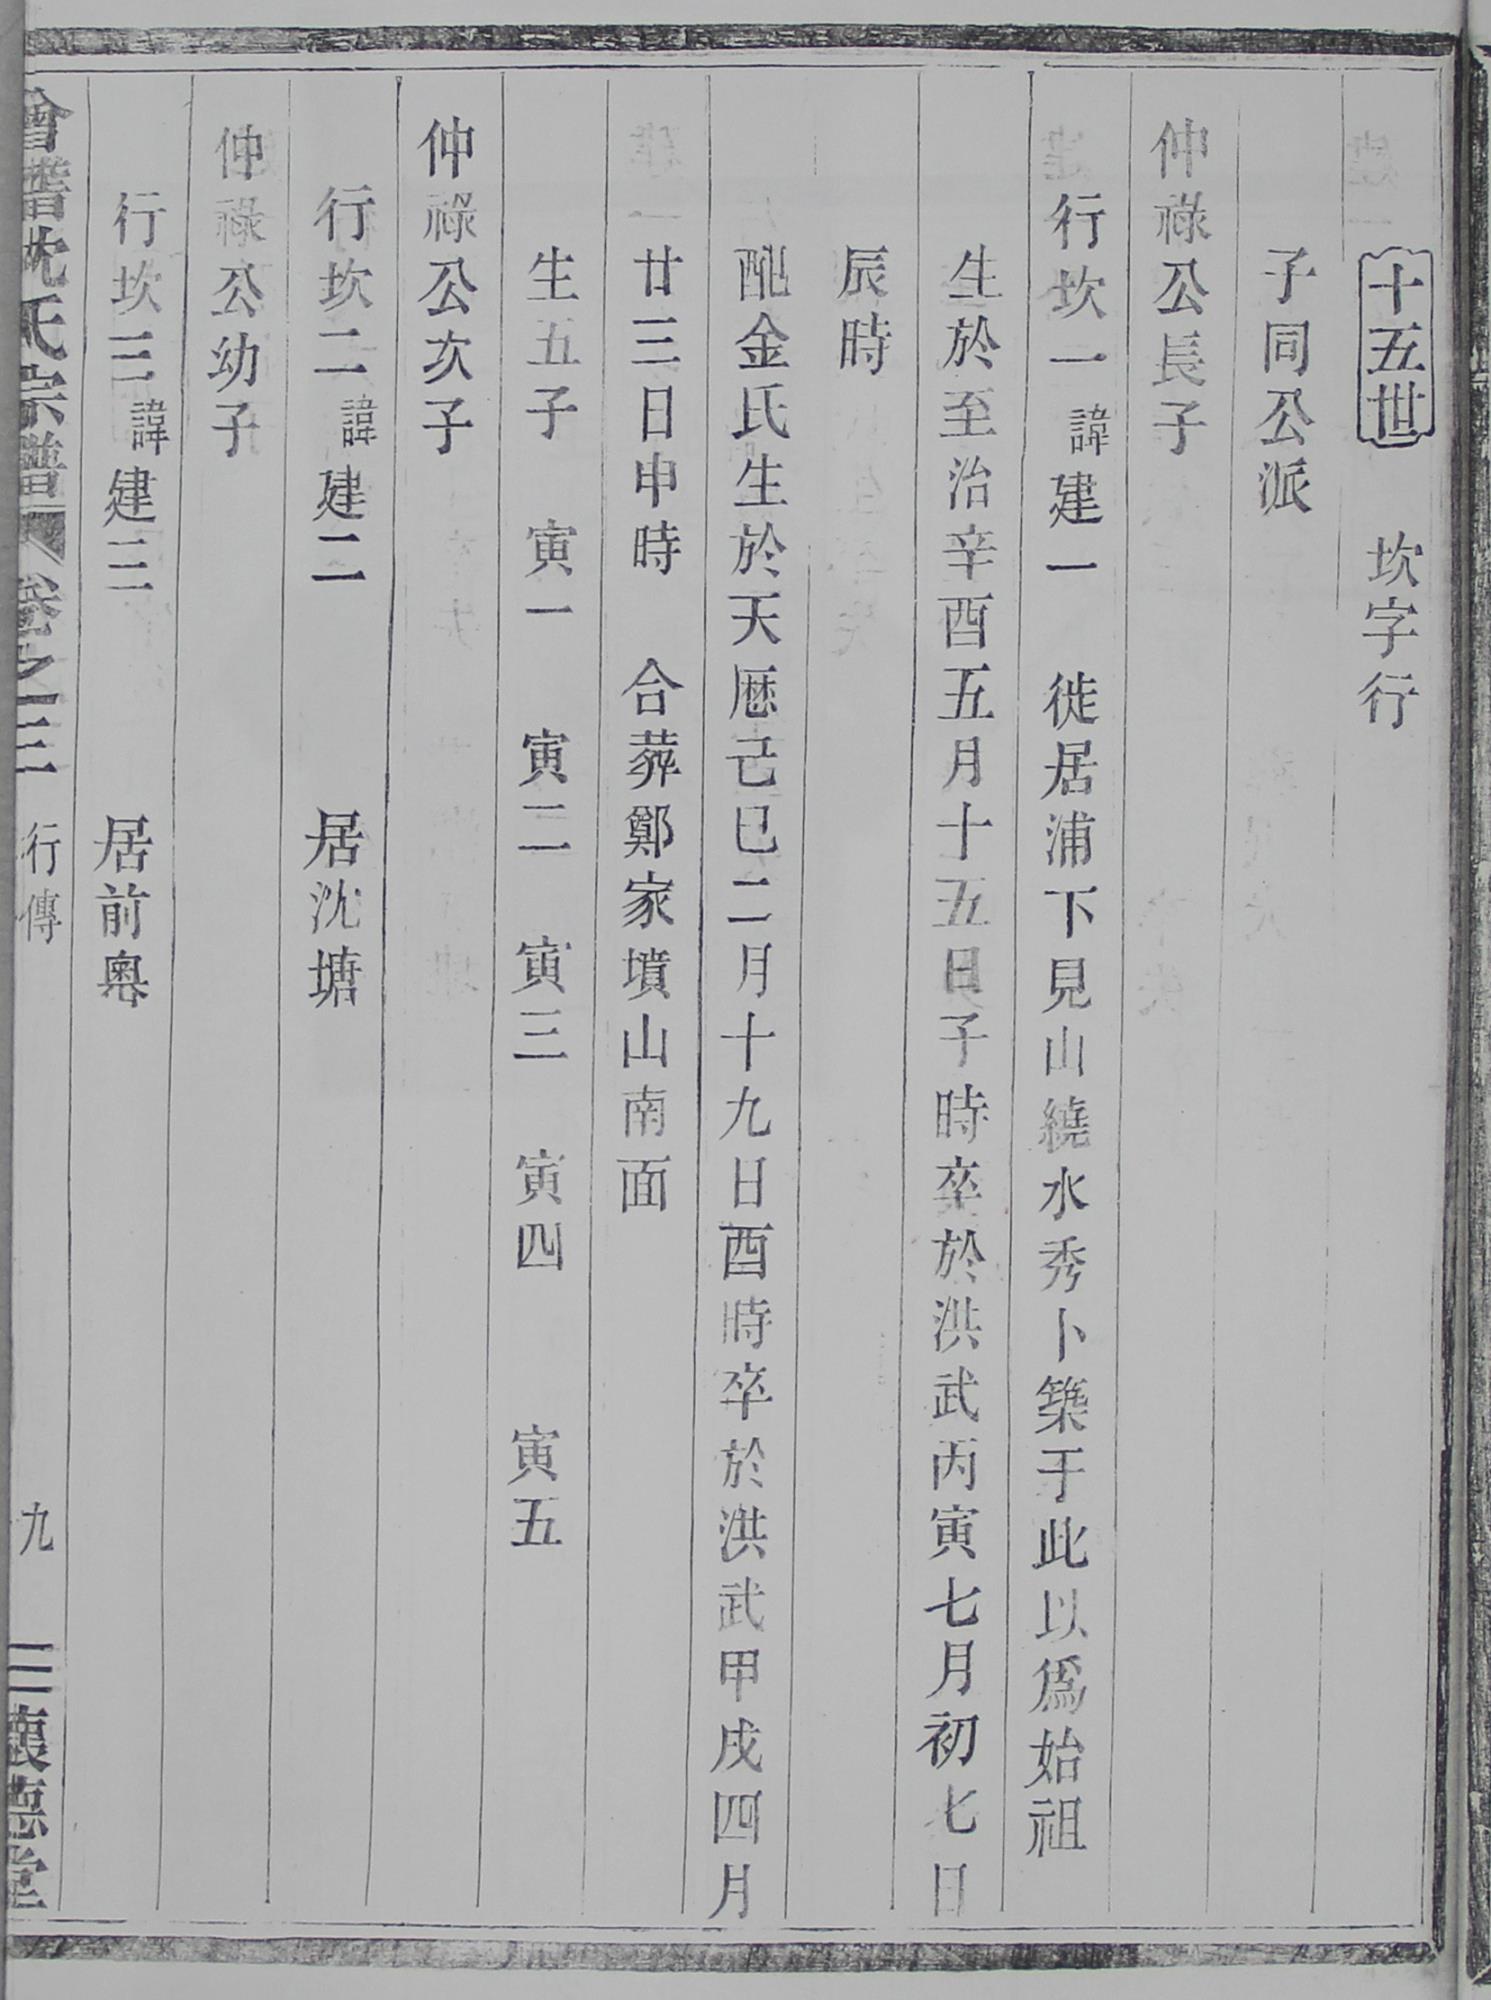 十五世 坎字行
子同公派
仲祿公長子
行坎一諱建一 徙居浦下見山繞水秀卜築于此以爲始祖
生於至治辛酉五月十五日子時卒於洪武丙寅七月初七日
辰時
配金氏生於天厯己巳二月十九日酉時卒於洪武甲戌四月
廿三日申時 合葬鄭家墳山南面
生五子 寅一 寅二 寅三 寅四 寅五
仲祿公次子
行坎二諱建二 居沈塘
仲祿公幼子
行坎三諱建三 居前粵
會稽沈氏宗譜 卷之三 行傳 九 三懷德堂